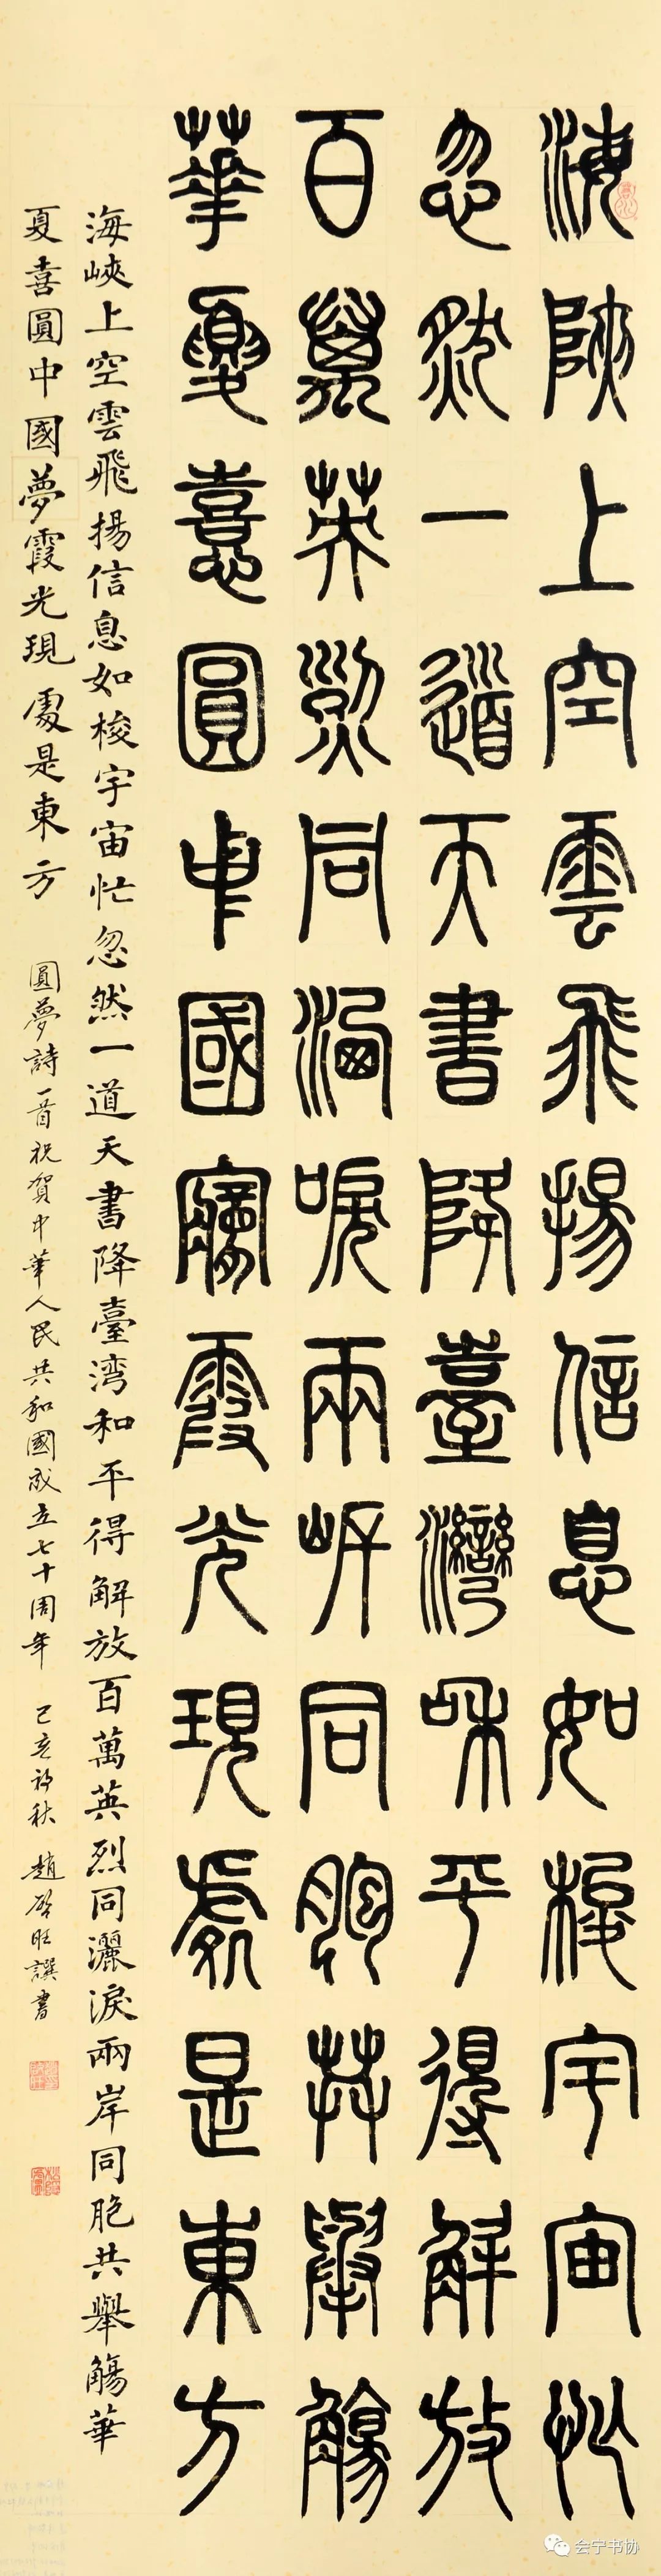 海陜上空雲飛揚信息如梭宇宙忙
忽然一道天書降臺灣和平得解放
百萬英烈同灑淚兩岸同胞共舉觴
華夏憙圓中國夢霞光現處是東方
海峽上空雲飛揚信息如梭宇宙忙忽然一道天書降臺湾和平得解放百萬英烈同灑淚兩岸同胞共舉觴華
夏喜圓中國夢霞光現處是東方 圓夢詩一首祝賀中華人民共和國成立七十周年 己亥初秋 趙啓旺譔書
会宁书协